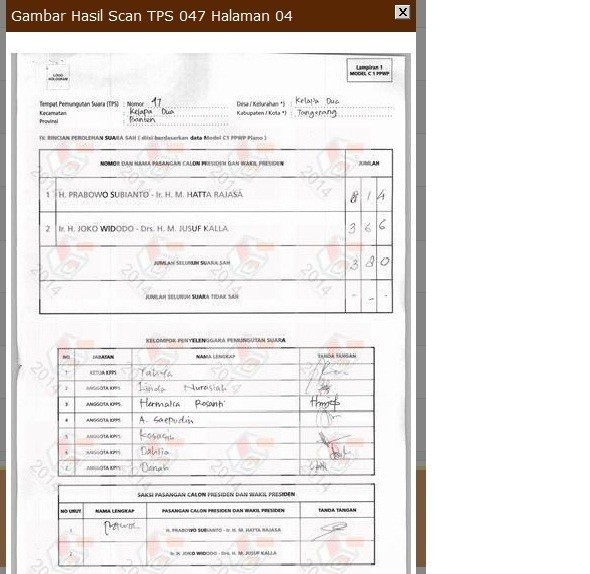 Gambar Hasil Scan TPS 047 Halaman 04
LOGO
HOLOGRAM
Lampiran 1
MODEL C 1 PPWP
Tempat Pemungutan Suara (TPS) : Nomor 47 Desa / Kelurahan *) : Kelapa Dua
Kecamatan : Kelapa Dua Kabupaten / Kota *) : Tangerang
Provinsi : Banten
IV. RINCIAN PEROLEHAN SUARA SAH ( diisi berdasarkan data Model C1 PPWP Plano )
NOMOR DAN NAMA PASANGAN CALON PRESIDEN DAN WAKIL PRESIDEN JUMLAH
1 H. PRABOWO SUBIANTO - Ir. H. M. HATTA RAJASA 8 1 4
2 Ir. H. JOKO WIDODO - Drs. H. M. JUSUF KALLA 3 6 6
JUMLAH SELURUH SUARA SAH 3 8 0
JUMLAH SELURUH SUARA TIDAK SAH - - -
KELOMPOK PENYELENGGARA PEMUNGUTAN SUARA
NO. JABATAN NAMA LENGKAP TANDA TANGAN
1 KETUA KPPS
2 ANGGOTA KPPS Linda Nurasiah
3 ANGGOTA KPPS Hermalia Rosanti
4 ANGGOTA KPPS A. Saepudin
5 ANGGOTA KPPS Kosasih
6 ANGGOTA KPPS Dahlia
7 ANGGOTA KPPS Danah
SAKSI PASANGAN CALON PRESIDEN DAN WAKIL PRESIDEN
NO URUT NAMA LENGKAP PASANGAN CALON PRESIDEN DAN WAKIL PRESIDEN TANDA TANGAN
1 H. PRABOWO SUBIANTO - Ir. H. M. HATTA RAJASA
2 Ir. H. JOKO WIDODO - Drs. H. M. JUSUF KALLA
2014